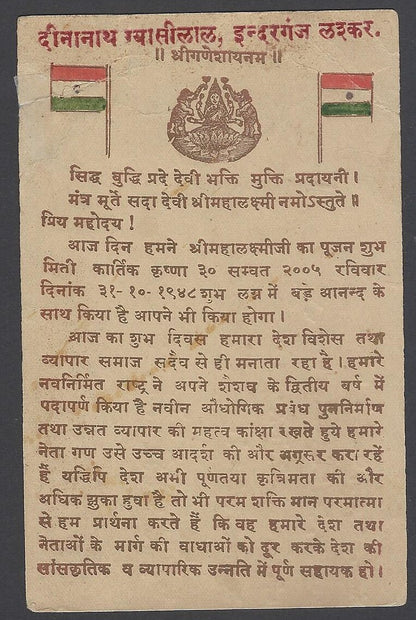 दीनानाथ ग्यासीलाल, इन्दरगंज लश्कर.
॥ श्रीगणेशायनम ॥
सिद्ध बुद्धि प्रदे देवी भक्ति मुक्ति प्रदायनी।
मंत्र मूर्ते सदा देवी श्रीमहालक्ष्मी नमोऽस्तुते ॥
प्रिय महोदय !
आज दिन हमने श्रीमहालक्ष्मीजी का पूजन शुभ
मिती कार्तिक कृष्णा ३० सम्वत २००५ रविवार
दिनांक ३१-१०-१९४८ शुभ लग्न में बड़े आनन्द के
साथ किया है आपने भी किया होगा।
आज का शुभ दिवस हमारा देश विशेस तथा
व्यापार समाज सदैव से ही मनाता रहा है। हमारे
नवनिर्मित राष्ट्र ने अपने शैशव के द्वितीय वर्ष में
पदार्पण किया है नवीन औधोगिक प्रबंध पुनर्निर्माण
तथा उन्नत व्यापार की महत्व कांक्षा रखते हुये हमारे
नेता गण उसे उच्च आदर्श की और अग्रसर करा रहें
हैं यद्दिपि देश अभी पूणतया कृत्रिमता की और
अधिक झुका हुवा है तो भी परम शक्ति मान परमात्मा
से हम प्रार्थना करते हैं कि वह हमारे देश तथा
नेताओं के मार्ग की वाधाओं को दूर करके देश की
सांसकृतिक व व्यापारिक उन्नति में पूर्ण सहायक हो।